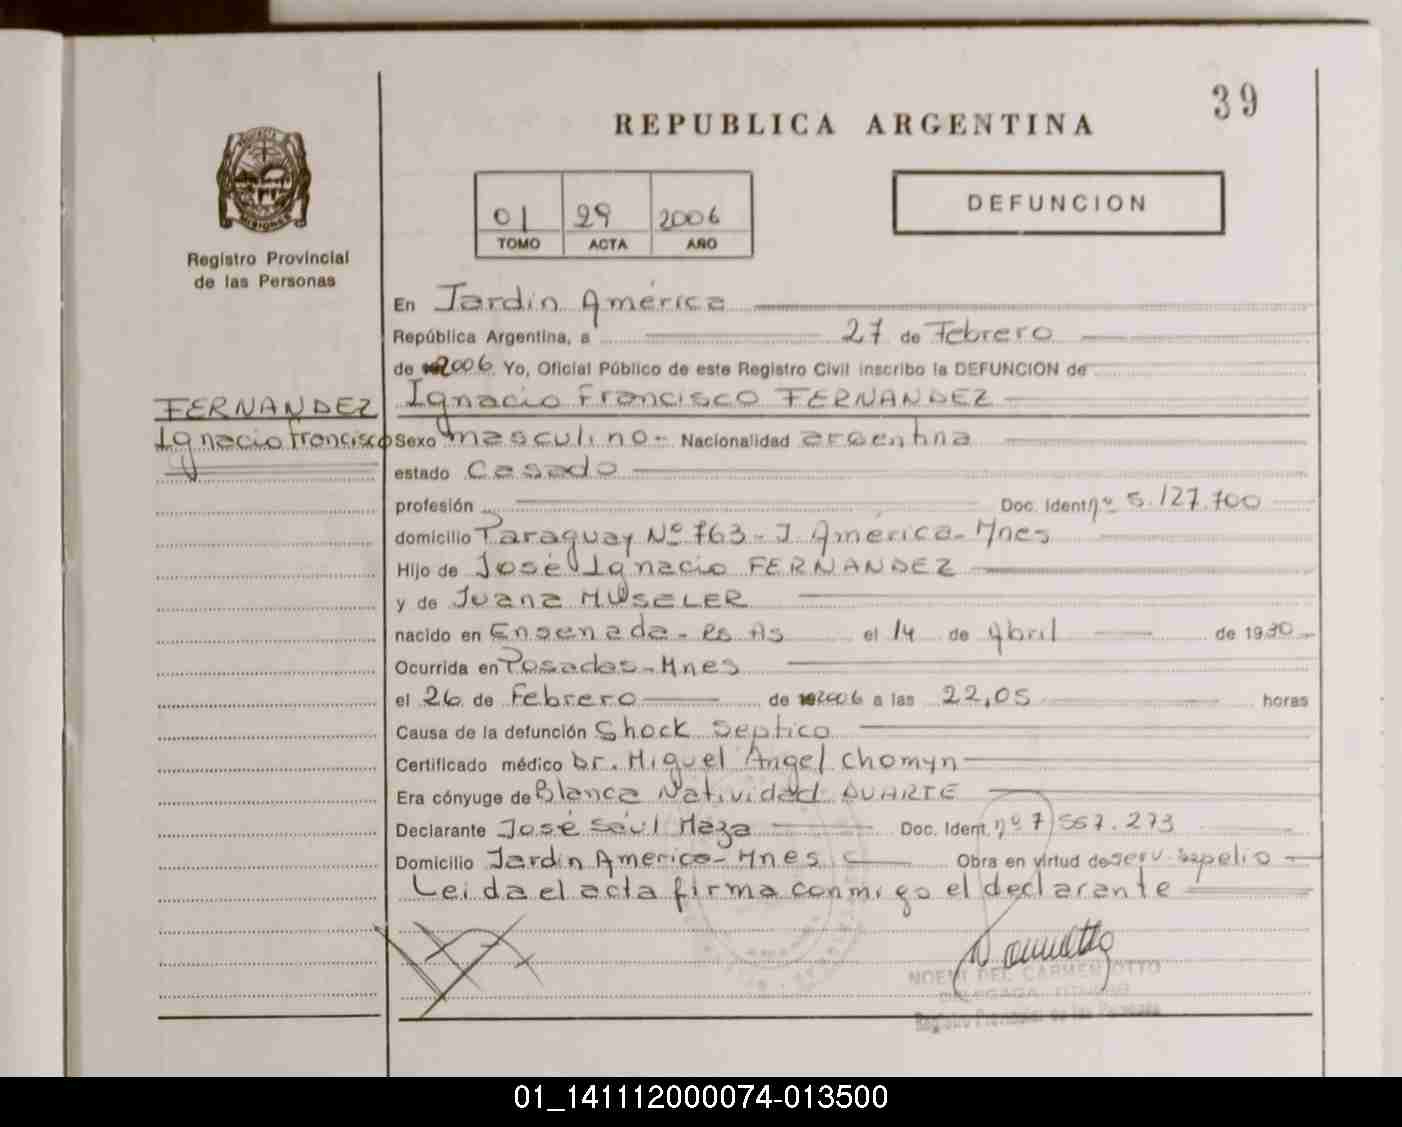 39
REPUBLICA ARGENTINA
01 29 2006
TOMO ACTA AÑO
DEFUNCION
Registro Provincial
de las Personas
En Jardín América
República Argentina, a 27 de Febrero
de 2006. Yo, Oficial Público de este Registro Civil inscribo la DEFUNCION de
FERNANDEZ
Ignacio Francisco
Ignacio Francisco FERNANDEZ
Sexo masculino - Nacionalidad argentina
estado Casado
profesión Doc. Ident. nº 5.127.700
domicilio Paraguay Nº 763 - J. América - Mnes
Hijo de José Ignacio FERNANDEZ
y de Juana MUSELER
nacido en Ensenada - Bs As el 14 de Abril de 1930
Ocurrida en Posadas - Mnes
el 26 de Febrero de 2006 a las 22,05 horas
Causa de la defunción Shock Septico
Certificado médico Dr. Miguel Angel Chomyn
Era cónyuge de Blanca Natividad DUARTE
Declarante José Saúl Maza Doc. Ident. nº 7.557.273
Domicilio Jardín America - Mnes Obra en virtud de serv. sepelio
Leida el acta firma conmigo el declarante
NOEMI DEL CARMEN OTTO
Registro Provincial de las Personas
01_141112000074-013500